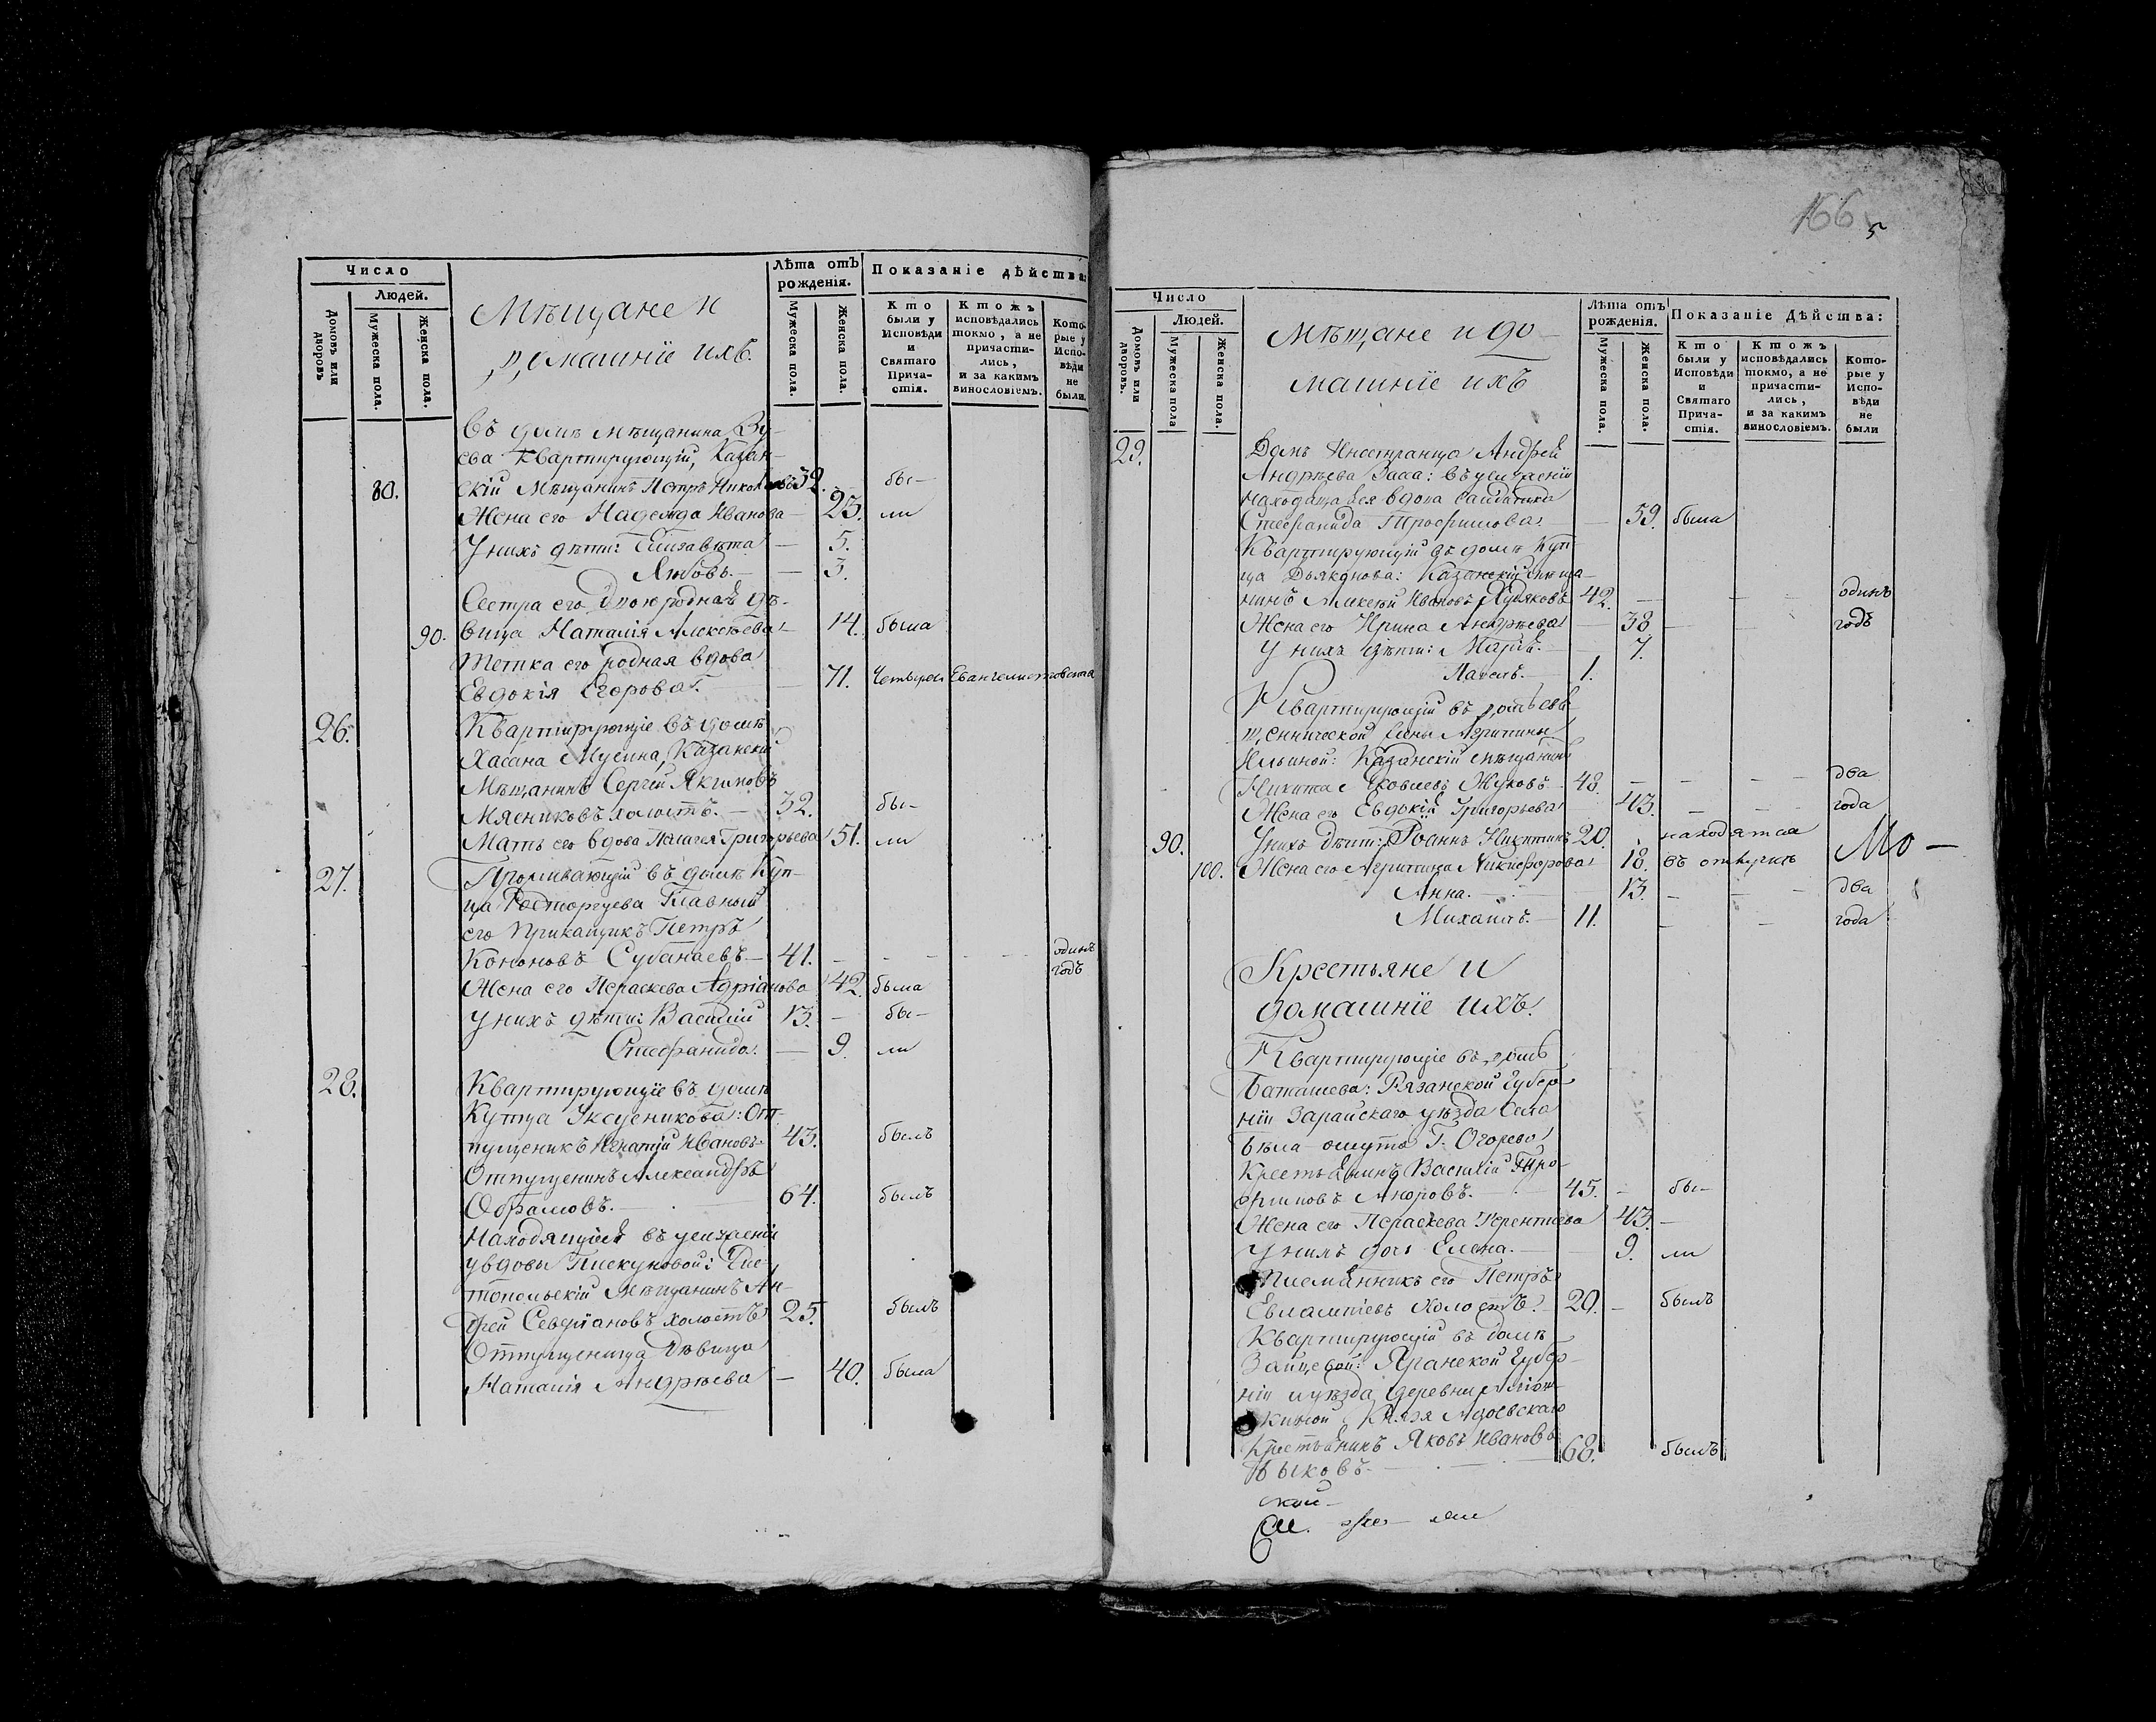 Число
Людей.
Домовъ или дворовъ
Мужеска пола.
Женска пола.
Мѣщане и
домашніе ихъ.
Лѣта отъ рожденія.
Мужеска пола.
Женска пола.
Показаніе дѣйства:
Кто были у Исповѣди и Святаго Прича-стія.
Ктожъ исповѣдались токмо, а не причасти-лись, и за какимъ винословіемъ.
Кото-рые у Испо-вѣди не были.
Въ домѣ мѣщанина Зу-
ева квартирующій, Казан-
80. скій Мѣщанинъ Петръ Николаевъ 32. бы-
Жена его Надежда Иванова — 23. ли
У нихъ дѣти: Елизавета — 5.
Любовь. — 3.
Сестра его двоюродная дѣ-
90. вица Наталія Алексѣева — 14. была
Тетка его родная вдова
Евдокія Егорова. — 71. Четырех Евангелистовская
26. Квартирующіе въ домѣ
Хасана Мусина, Казанскій
Мѣщанинъ Сергей Якимовъ
Мясниковъ холостъ. — 32. бы-
Мать его вдова Пелагея Григорьева 51. ли
27. Проживающій въ домѣ Куп-
ца Расторгуева Главный
его Прикащикъ Петръ
Кононовъ Субанаевъ. — 41. - - - - - одинъ годъ
Жена его Параскева Адріанова 42. была
У нихъ дѣти: Василій 13. — бы-
Стефанида. — 9. ли
28. Квартирующіе въ домѣ
Купца Уксусникова: От-
пущеникъ Игнатій Ивановъ 43. былъ
Отпущенинъ Александръ
Обрамовъ. — 64. былъ
Находящійся въ услуженіи
у вдовы Пискуновой:
Мѣщанинъ Ан-
дрей Северіановъ холостъ 25. былъ
Отпущеница Дѣвица
Наталія Андрѣева — 40. была
166
5
Число
Людей.
Домовъ или дворовъ.
Мужеска пола
Женска пола.
Мѣщане и до-
машніе ихъ
Лѣта отъ рожденія.
Мужеска пола.
Женска пола.
Показаніе Дѣйства:
Кто были у Исповѣди и Святаго Прича-стія.
Ктожъ исповѣдались токмо, а не причасти-лись, и за какимъ винословіемъ.
Кото-рые у Испо-вѣди не были
29. Домъ Иностранца Андрея
Андрѣева Заса: въ услуженіи
находящаяся вдова салдатка
Стефанида Трофимова. — 59. была
Квартирующій въ домѣ Куп-
ца Дьяконова: Казанскій мѣща-
нинъ Алексѣй Ивановъ Худяковъ 42. — - - одинъ
Жена его Ирина Андрѣева — 38 - - годъ
У нихъ дѣти: Марія. — 7.
Павелъ. — 1.
Квартирующій въ домѣ свя-
щеннической жены Агрипины
Ильиной: Казанскій мѣщанинъ
Никита Яковлевъ Жуковъ 48. — - - два
Жена его Евдокія Григорьева 43. - - года
90. У нихъ дѣти: Іоаннъ Никитинъ 20. находятся Мо-
100. Жена его Агрипина Никифорова 18. въ отлучкѣ
Анна. — 13. - - два
Михаилъ. — 11. - - года
Крестьяне и
домашніе ихъ.
Квартирующіе въ домѣ
Баташева: Рязанской Губер-
ніи Зарайскаго уѣзда Села
Бѣла-омута Г. Огорева
Крестьянинъ Василій Тро-
фимовъ 45. - бы-
Жена его Параскева Терентиева 43. —
У нихъ дочь Елена. — 9. ли
Племянникъ его Петръ
Евлампіевъ холостъ. — 20. - былъ
Квартирующій въ домѣ
Зайцевой: Губер-
ніи и уѣзда деревни
Князя
Крестьянинъ Яковъ Ивановъ
Быковъ. — 68. былъ